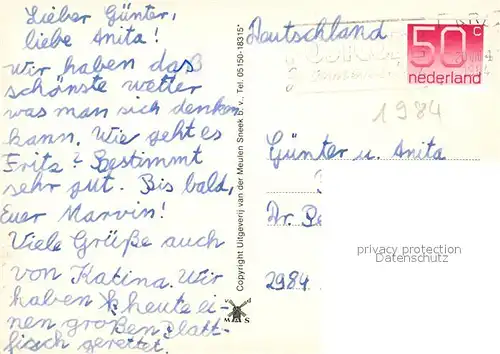 Lieber Günter,
liebe Anita!
Wir haben das
schönste wetter
was man sich denken
kann. Wie geht es
Fritz? Bestimmt
sehr gut. Bis bald,
Euer Marvin!
Viele Grüße auch
von Katina. Wir
haben heute ei-
nen großen Platt-
fisch gerettet.
Copyright Uitgeverij van der Meulen Sneek b.v. Tel. 05150-18315*
MS
Deutschland
50c
nederland
1984
Günter u. Anita
Dr. Be
privacy protection
Datenschutz
2984